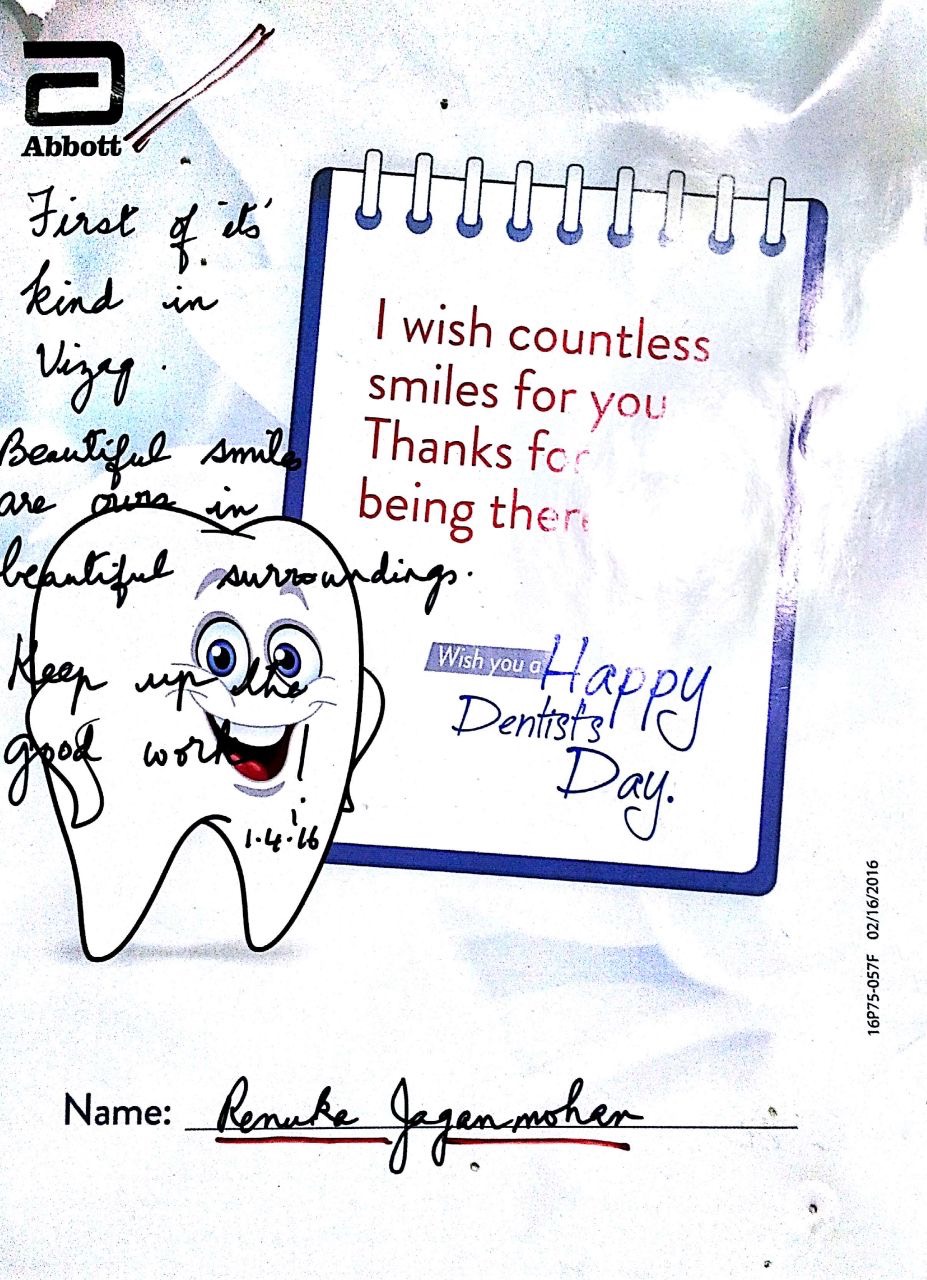 Abbott
First of 'its'
kind in
Vizag.
Beautiful smiles
are ours in
beautiful surroundings.
Keep up the
good work !
1.4.16
I wish countless
smiles for you
Thanks for
being there
Wish you a Happy
Dentist's
Day.
16P75-057F 02/16/2016
Name: Renuka Jaganmohan